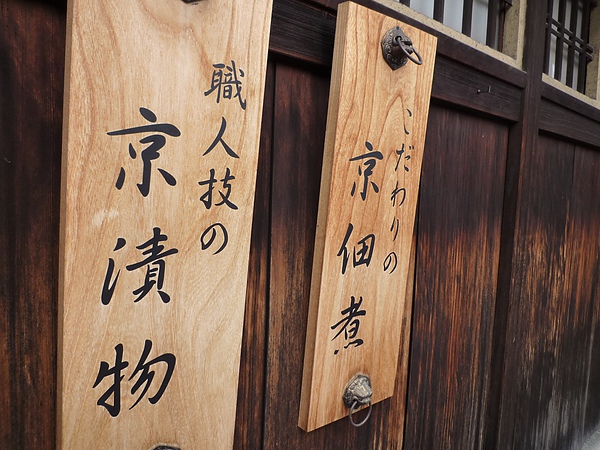 職人技の
京漬物
こだわりの
京佃煮